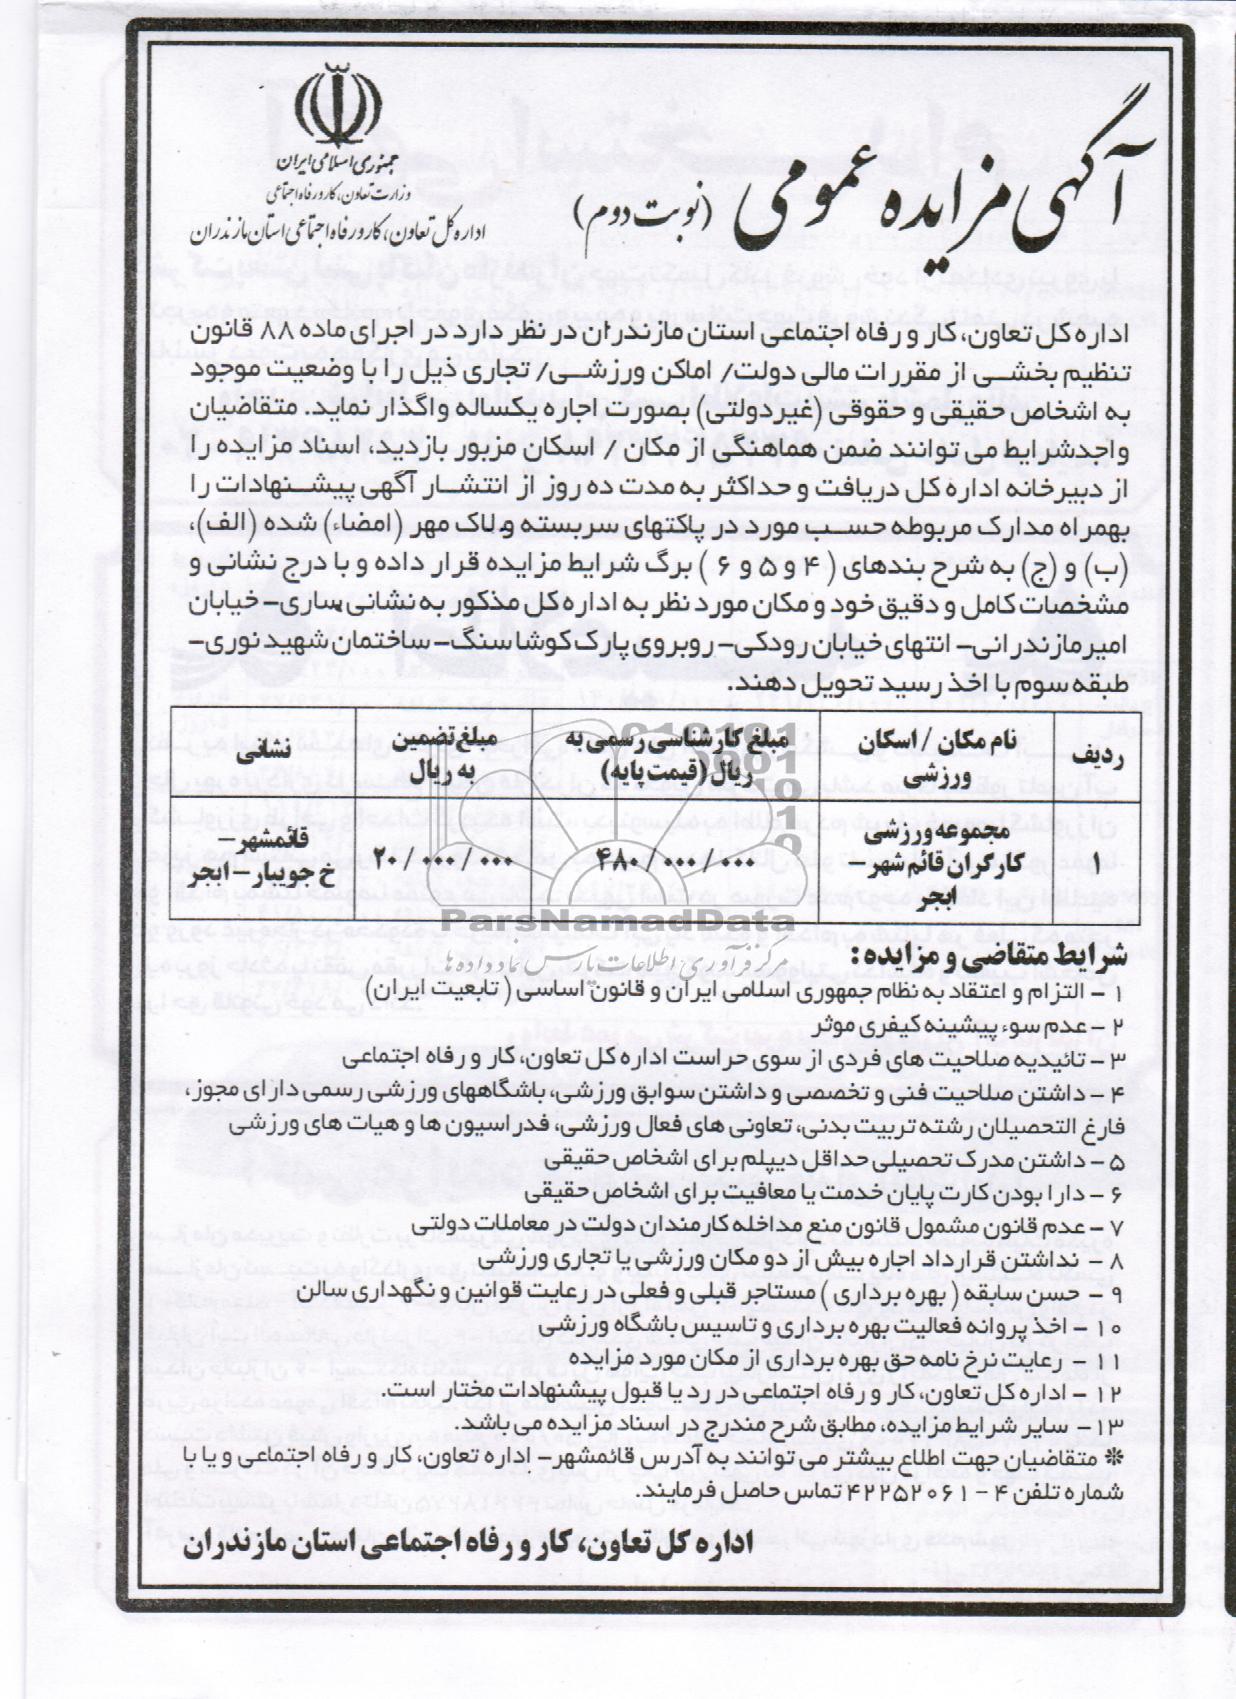 جمهوری اسلامی ایران
وزارت تعاون، کار و رفاه اجتماعی
اداره کل تعاون، کار و رفاه اجتماعی استان مازندران
آگهی مزایده عمومی (نوبت دوم)
اداره کل تعاون، کار و رفاه اجتماعی استان مازندران در نظر دارد در اجرای ماده ۸۸ قانون
تنظیم بخشی از مقررات مالی دولت/ اماکن ورزشی/ تجاری ذیل را با وضعیت موجود
به اشخاص حقیقی و حقوقی (غیردولتی) بصورت اجاره یکساله واگذار نماید. متقاضیان
واجدشرایط می توانند ضمن هماهنگی از مکان / اسکان مزبور بازدید، اسناد مزایده را
از دبیرخانه اداره کل دریافت و حداکثر به مدت ده روز از انتشار آگهی پیشنهادات را
بهمراه مدارک مربوطه حسب مورد در پاکتهای سربسته و لاک مهر (امضاء) شده (الف)،
(ب) و (ج) به شرح بندهای ( ۴ و ۵ و ۶ ) برگ شرایط مزایده قرار داده و با درج نشانی و
مشخصات کامل و دقیق خود و مکان مورد نظر به اداره کل مذکور به نشانی ساری- خیابان
امیرمازندرانی- انتهای خیابان رودکی- روبروی پارک کوشاسنگ- ساختمان شهید نوری-
طبقه سوم با اخذ رسید تحویل دهند.
ردیف
نام مکان / اسکان
ورزشی
مبلغ کارشناسی رسمی به
ریال (قیمت پایه)
مبلغ تضمین
به ریال
نشانی
۱
مجموعه ورزشی
کارگران قائم شهر-
ابجر
۴۸۰/۰۰۰/۰۰۰
۲۰/۰۰۰/۰۰۰
قائمشهر-
خ جویبار- ابجر
ParsNamadData
مرکز فرآوری اطلاعات پارس نماد داده ها
شرایط متقاضی و مزایده:
۱ - التزام و اعتقاد به نظام جمهوری اسلامی ایران و قانون اساسی ( تابعیت ایران)
۲ - عدم سوء پیشینه کیفری موثر
۳ - تائیدیه صلاحیت های فردی از سوی حراست اداره کل تعاون، کار و رفاه اجتماعی
۴ - داشتن صلاحیت فنی و تخصصی و داشتن سوابق ورزشی، باشگاههای ورزشی رسمی دارای مجوز،
فارغ التحصیلان رشته تربیت بدنی، تعاونی های فعال ورزشی، فدراسیون ها و هیات های ورزشی
۵ - داشتن مدرک تحصیلی حداقل دیپلم برای اشخاص حقیقی
۶ - دارا بودن کارت پایان خدمت یا معافیت برای اشخاص حقیقی
۷ - عدم قانون مشمول قانون منع مداخله کارمندان دولت در معاملات دولتی
۸ - نداشتن قرارداد اجاره بیش از دو مکان ورزشی یا تجاری ورزشی
۹ - حسن سابقه ( بهره برداری ) مستاجر قبلی و فعلی در رعایت قوانین و نگهداری سالن
۱۰ - اخذ پروانه فعالیت بهره برداری و تاسیس باشگاه ورزشی
۱۱ - رعایت نرخ نامه حق بهره برداری از مکان مورد مزایده
۱۲ - اداره کل تعاون، کار و رفاه اجتماعی در رد یا قبول پیشنهادات مختار است.
۱۳ - سایر شرایط مزایده، مطابق شرح مندرج در اسناد مزایده می باشد.
※ متقاضیان جهت اطلاع بیشتر می توانند به آدرس قائمشهر- اداره تعاون، کار و رفاه اجتماعی و یا با
شماره تلفن ۴ - ۴۲۲۵۲۰۶۱ تماس حاصل فرمایند.
اداره کل تعاون، کار و رفاه اجتماعی استان مازندران